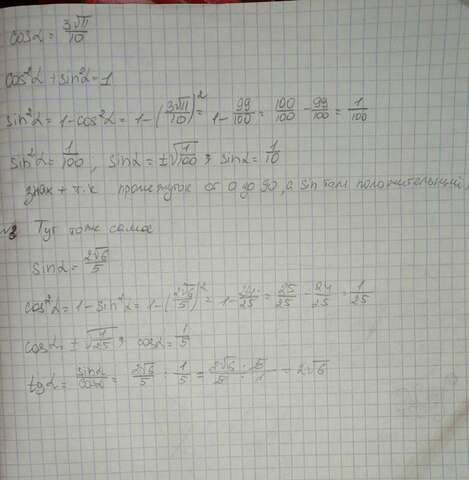 cosα = 3√11/10
cos²α + sin²α = 1
sin²α = 1 - cos²α = 1 - (3√11/10)² = 1 - 99/100 = 100/100 - 99/100 = 1/100
sin²α = 1/100, sinα = ±√1/100; sinα = 1/10
знак + т.к промежуток от 0 до 90, а sin там положительный
Тут тоже самое
sinα = 2√6/5
cos²α = 1 - sin²α = 1 - (2√6/5)² = 1 - 24/25 = 25/25 - 24/25 = 1/25
cosα = ±√1/25; cosα = 1/5
tgα = sinα/cosα = 2√6/5 : 1/5 = 2√6/5 · 5/1 = 2√6